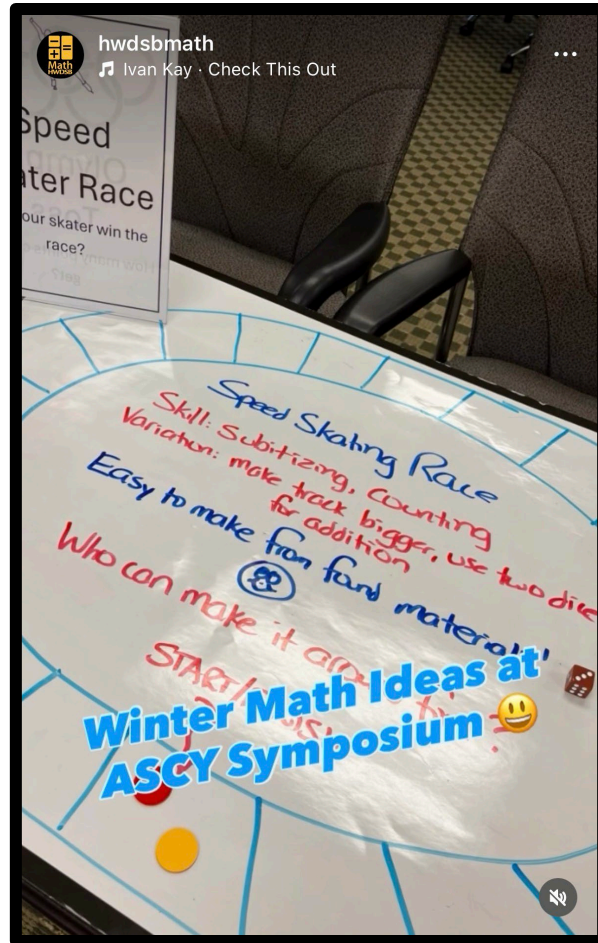 hwdsbmath
Ivan Kay · Check This Out
Math
HWDSB
Speed
ater Race
our skater win the
race?
Speed Skating Race
Skill: Subitizing, Counting
Variation: make track bigger, use two dice
for addition
Easy to make from found materials!
Who can make it
START/
Winter Math Ideas at
ASCY Symposium 😃